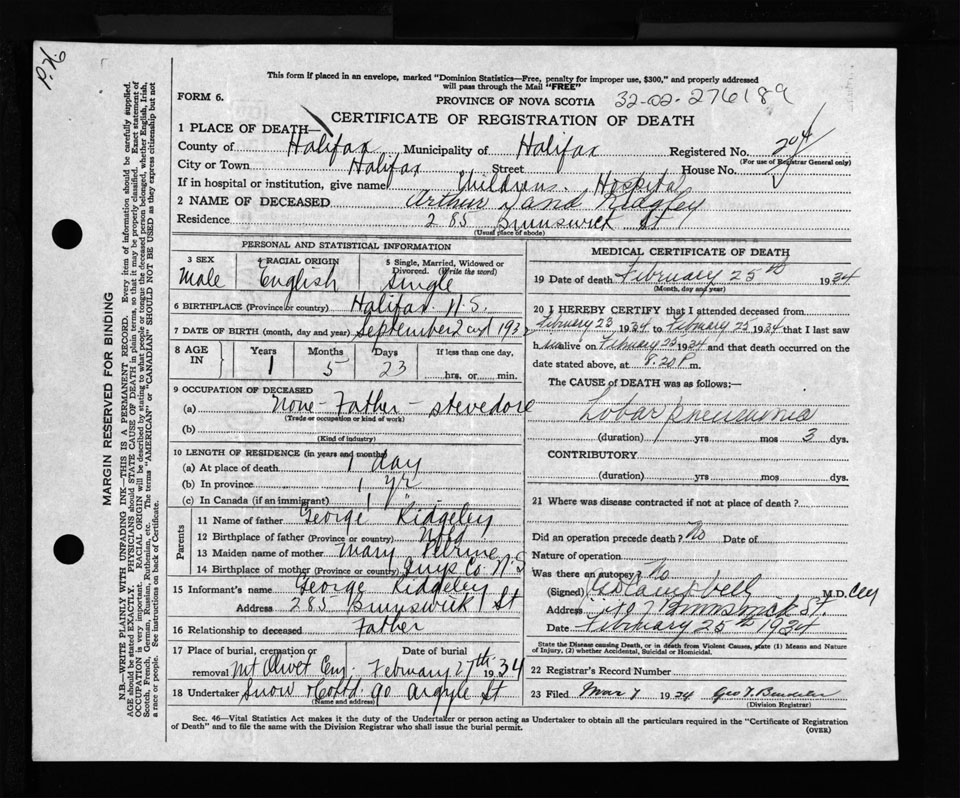 P.H.
This form if placed in an envelope, marked "Dominion Statistics—Free, penalty for improper use, $300," and properly addressed
will pass through the Mail "FREE"
FORM 6.
PROVINCE OF NOVA SCOTIA 32-02-276189
CERTIFICATE OF REGISTRATION OF DEATH
1 PLACE OF DEATH—
County of Halifax Municipality of Halifax Registered No. 204
(For use of Registrar General only)
City or Town Halifax Street House No.
If in hospital or institution, give name Childrens. Hospital
2 NAME OF DECEASED Arthur Ridgley
Residence 285 Brunswick St
(Usual place of abode)
PERSONAL AND STATISTICAL INFORMATION
3 SEX 4 RACIAL ORIGIN 5 Single, Married, Widowed or
Divorced. (Write the word)
Male English Single
6 BIRTHPLACE (Province or country) Halifax N.S.
7 DATE OF BIRTH (month, day and year) September 2nd 1932
8 AGE IN Years Months Days If less than one day,
1 5 23 hrs. or min.
9 OCCUPATION OF DECEASED
(a) None - Father - stevedore
(Trade or occupation or kind of work)
(b)
(Kind of industry)
10 LENGTH OF RESIDENCE (in years and months)
(a) At place of death 1 day
(b) In province 1 yr
(c) In Canada (if an immigrant) 1 "
Parents
11 Name of father George Ridgeley
12 Birthplace of father (Province or country) Nfld
13 Maiden name of mother Mary
14 Birthplace of mother (Province or country) Guys Co. N.S
15 Informant's name George Ridgeley
Address 285 Brunswick St
16 Relationship to deceased Father
17 Place of burial, cremation or Date of burial
removal Mt Olivet Cmy. February 27th 1934
18 Undertaker Snow & Co Ltd 90 Argyle St
(Name and address)
MEDICAL CERTIFICATE OF DEATH
19 Date of death February 25th 1934
(Month, day and year)
20 I HEREBY CERTIFY that I attended deceased from
February 23 1934 to February 25 1934 that I last saw
h alive on February 25 1934 and that death occurred on the
date stated above, at 8.20 P m.
The CAUSE of DEATH was as follows:—
Lobar Pneumonia
(duration) yrs mos 3 dys.
CONTRIBUTORY
(duration) yrs mos dys.
21 Where was disease contracted if not at place of death?
Did an operation precede death? No Date of
Nature of operation
Was there an autopsy? No
(Signed) Campbell M.D.
Address Brunswick St.
Date February 25th 1934
State the Disease causing Death, or in death from Violent Causes, state (1) Means and Nature
of Injury, (2) whether Accidental, Suicidal or Homicidal.
22 Registrar's Record Number
23 Filed Mar 7 1934 Geo
(Division Registrar)
Sec. 46—Vital Statistics Act makes it the duty of the Undertaker or person acting as Undertaker to obtain all the particulars required in the "Certificate of Registration
of Death" and to file the same with the Division Registrar who shall issue the burial permit. (OVER)
MARGIN RESERVED FOR BINDING
N.B.—WRITE PLAINLY WITH UNFADING INK—THIS IS A PERMANENT RECORD. Every item of information should be carefully supplied.
AGE should be stated EXACTLY. PHYSICIANS should STATE CAUSE OF DEATH in plain terms, so that it may be properly classified. Exact statement of
OCCUPATION is very important. RACIAL ORIGIN will be described by stating to what people or tongue the deceased person belonged, whether English, Irish,
Scotch, French, German, Russian, Ruthenian, etc. The terms "AMERICAN" or "CANADIAN" SHOULD NOT BE USED as they express citizenship but not
a race or people. See instructions on back of Certificate.